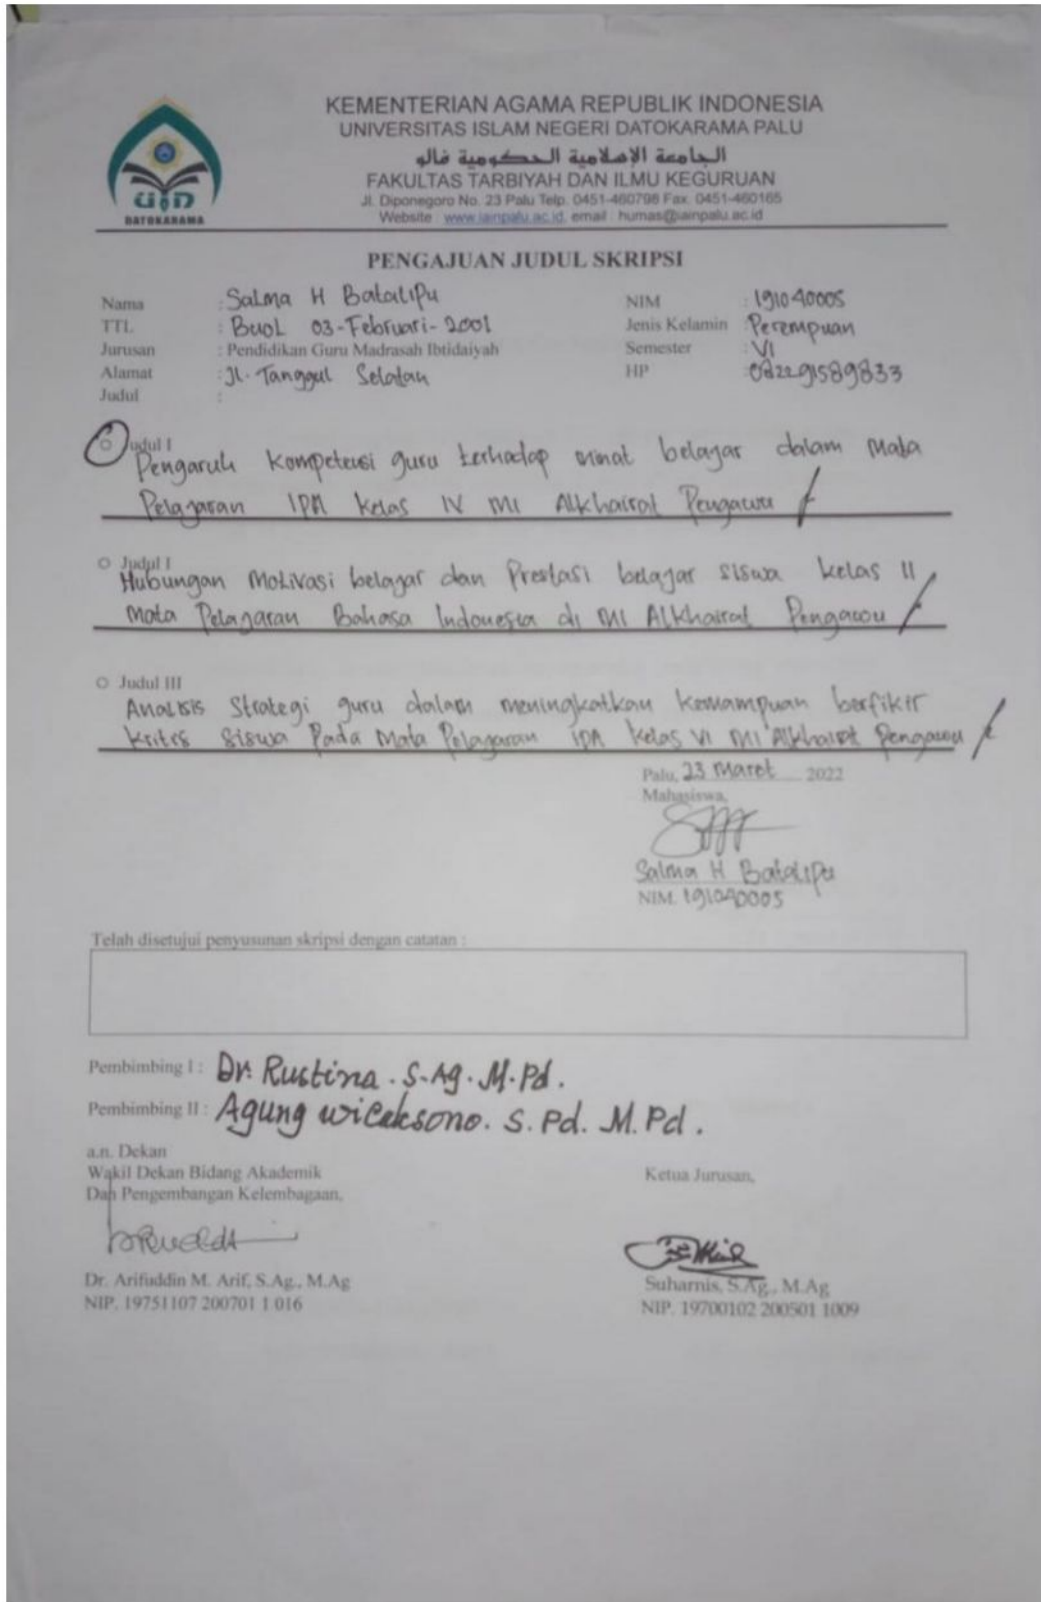 KEMENTERIAN AGAMA REPUBLIK INDONESIA
UNIVERSITAS ISLAM NEGERI DATOKARAMA PALU
الجامعة الإسلامية الحكومية فالو
FAKULTAS TARBIYAH DAN ILMU KEGURUAN
Jl. Diponegoro No. 23 Palu Telp. 0451-460798 Fax. 0451-460165
Website : www.iainpalu.ac.id, email : humas@iainpalu.ac.id
UIN
DATOKARAMA
PENGAJUAN JUDUL SKRIPSI
Nama : Salma H Batalipu NIM : 191040005
TTL : Buol 03-Februari-2001 Jenis Kelamin : Perempuan
Jurusan : Pendidikan Guru Madrasah Ibtidaiyah Semester : VI
Alamat : Jl. Tanggul Selatan HP : 082291589833
Judul :
Judul I
Pengaruh Kompetensi guru terhadap minat belajar dalam Mata
Pelajaran IPA Kelas IV MI Alkhairat Pengawu
Judul I
Hubungan Motivasi belajar dan Prestasi belajar siswa kelas II
Mata Pelajaran Bahasa Indonesia di MI Alkhairat Pengawu
Judul III
Analisis Strategi guru dalam meningkatkan kemampuan berfikir
kritis siswa Pada Mata Pelajaran IPA Kelas VI MI Alkhairat Pengawu
Palu, 23 Maret 2022
Mahasiswa,
Salma H Batalipu
NIM. 191040005
Telah disetujui penyusunan skripsi dengan catatan :
Pembimbing I : Dr. Rustina. S.Ag. M.Pd.
Pembimbing II : Agung wicaksono. S. Pd. M. Pd.
a.n. Dekan
Wakil Dekan Bidang Akademik Ketua Jurusan,
Dan Pengembangan Kelembagaan,
Dr. Arifuddin M. Arif, S.Ag., M.Ag Suharnis, S.Ag., M.Ag
NIP. 19751107 200701 1 016 NIP. 19700102 200501 1009